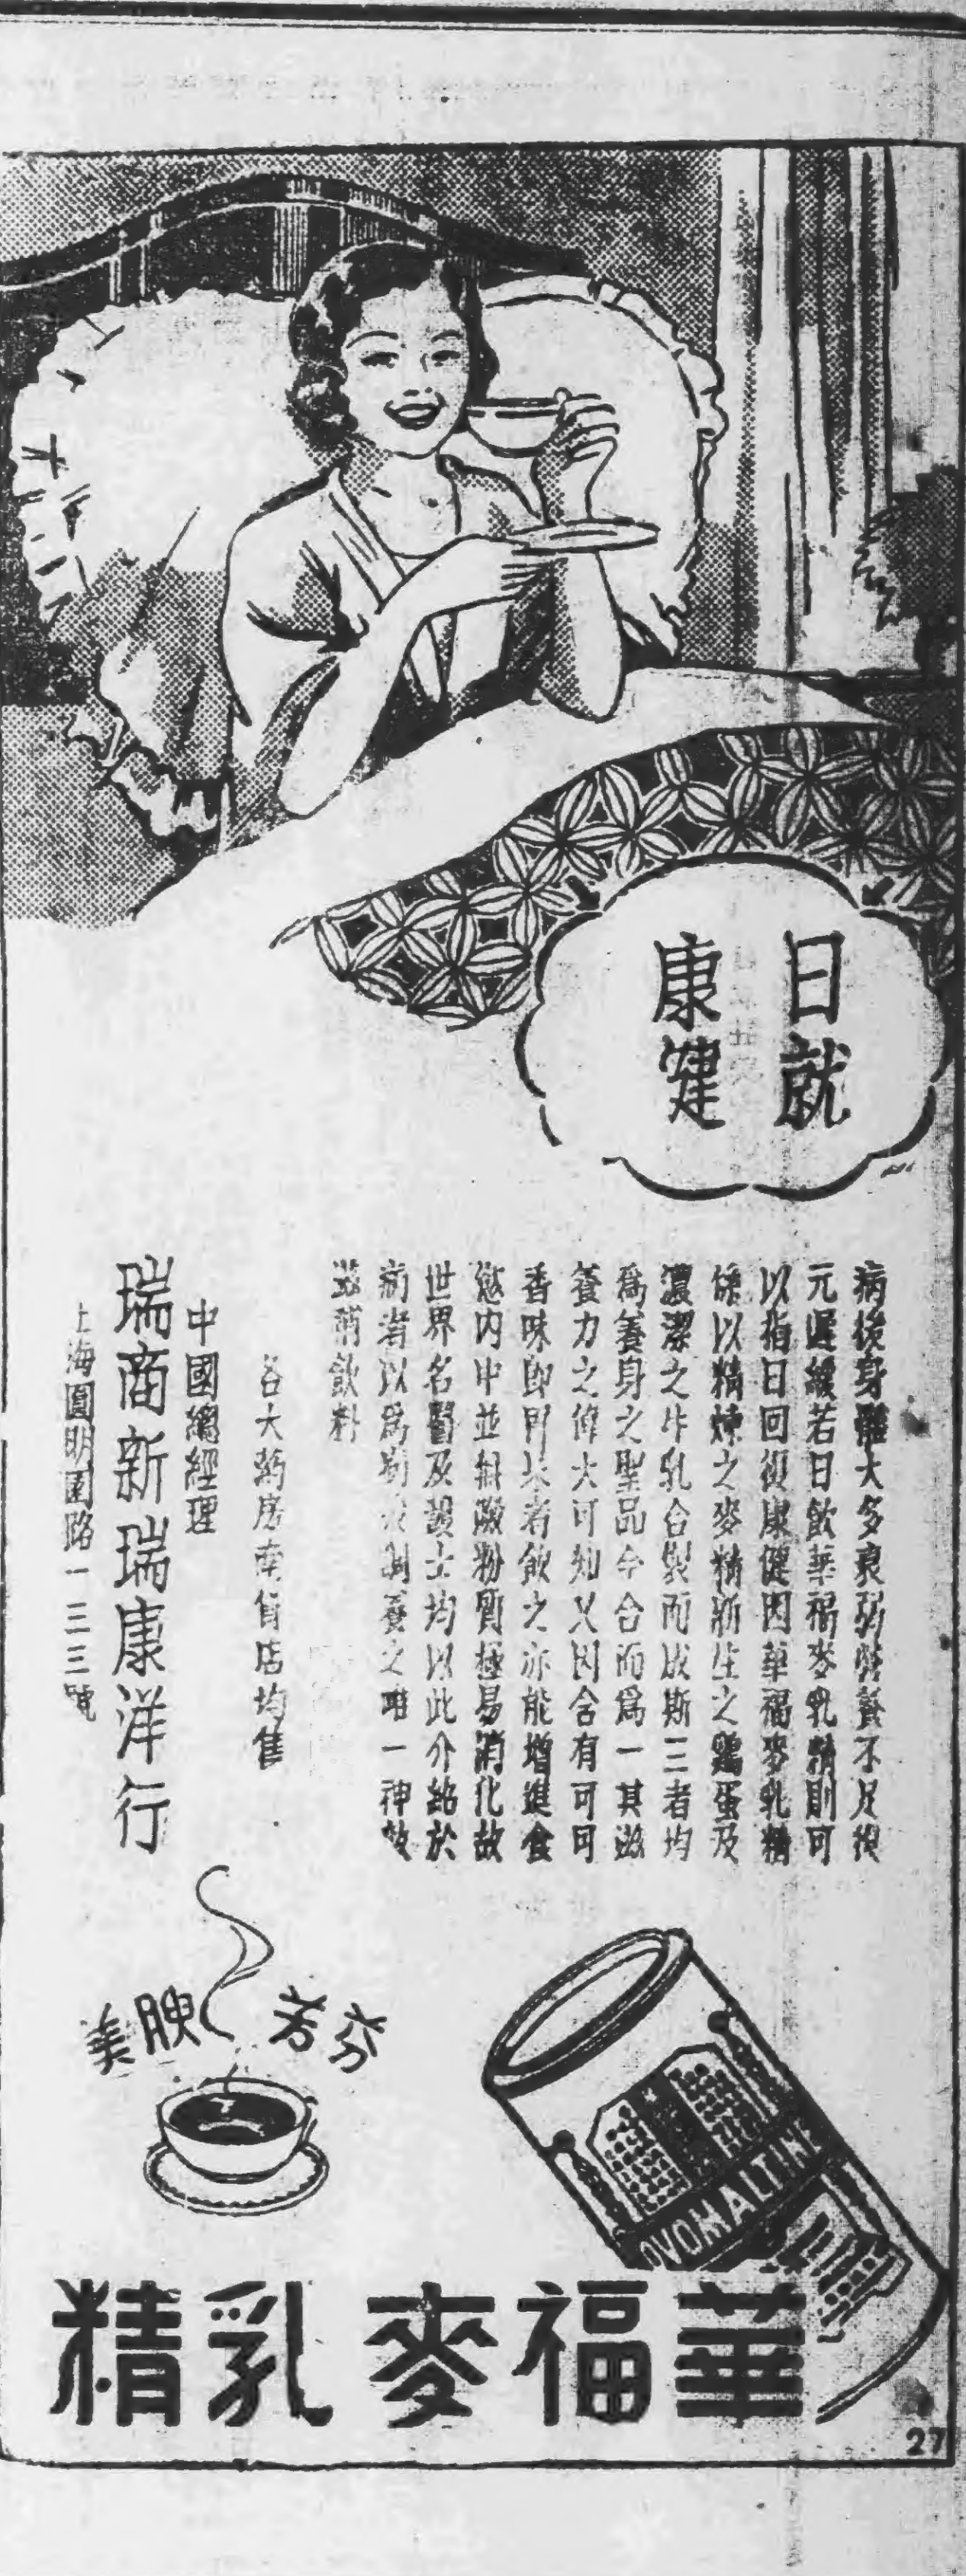 日就
康健
病後身體大多衰弱營養不足復
元遲緩若日飲華福麥乳精則可
以指日回復康健因華福麥乳精
係以精煉之麥精新生之鷄蛋及
濃潔之牛乳合製而成斯三者均
爲養身之聖品今合而爲一其滋
養力之偉大可知又因含有可可
香味卽胃呆者飲之亦能增進食
慾內中並無澱粉質極易消化故
世界名醫及護士均以此介紹於
病者以爲病後調養之唯一神效
滋補飲料
各大藥房南貨店均售
中國總經理
瑞商新瑞康洋行
上海圓明園路一三三號
芬芳腴美
OVOMALTINE
華福麥乳精
27